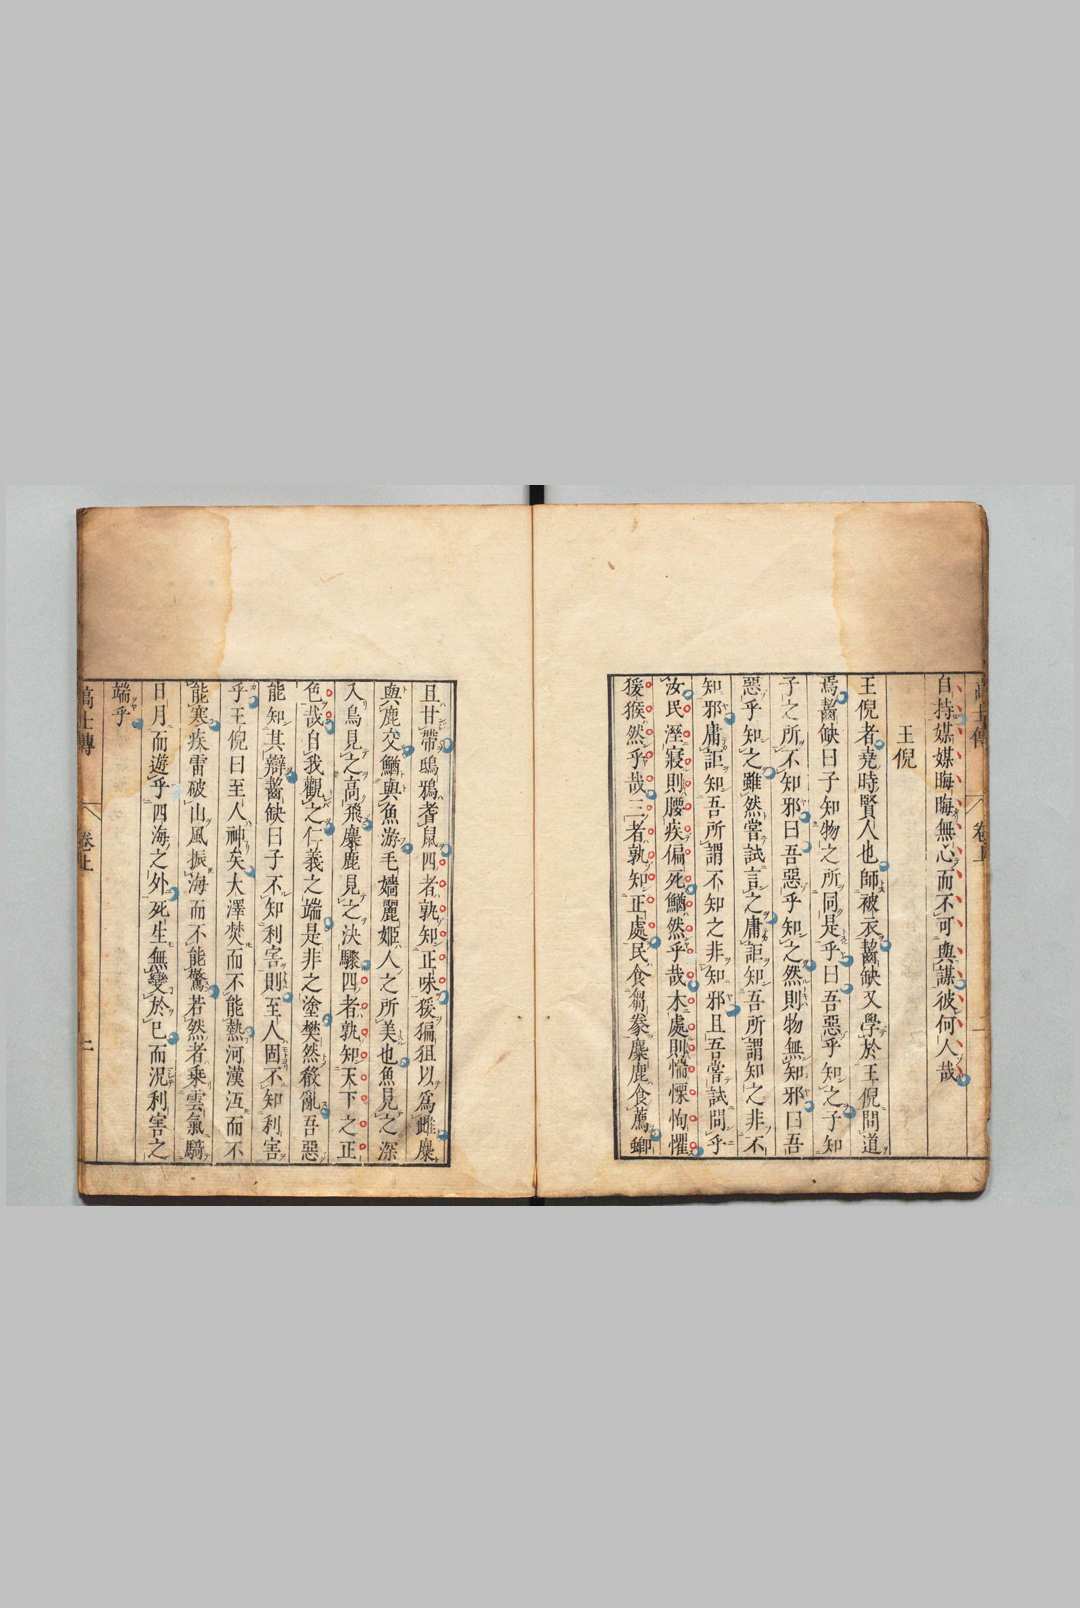 自持媒媒晦晦無心而不可與謀彼何人哉
王倪
王倪者堯時賢人也師被衣齧缺又學於王倪問道
焉齧缺曰子知物之所同是乎曰吾惡乎知之子知
子之所不知邪曰吾惡乎知之然則物無知邪曰吾
惡乎知之雖然嘗試言之庸詎知吾所謂知之非不
知邪庸詎知吾所謂不知之非知邪且吾嘗試問乎
汝民溼寢則腰疾偏死鰌然乎哉木處則惴慄恂懼
猨猴然乎哉三者孰知正處民食芻豢麋鹿食薦蝍
且甘帶鴟鴉耆鼠四者孰知正味猨猵狙以爲雌麋
與鹿交鰌與魚游毛嬙麗姬人之所美也魚見之深
入鳥見之高飛麋鹿見之決驟四者孰知天下之正
色哉自我觀之仁義之端是非之塗樊然殽亂吾惡
能知其辯齧缺曰子不知利害則至人固不知利害
乎王倪曰至人神矣大澤焚而不能熱河漢沍而不
能寒疾雷破山風振海而不能驚若然者乘雲氣騎
日月而遊乎四海之外死生無變於已而況利害之
端乎
高士傳
卷上
二